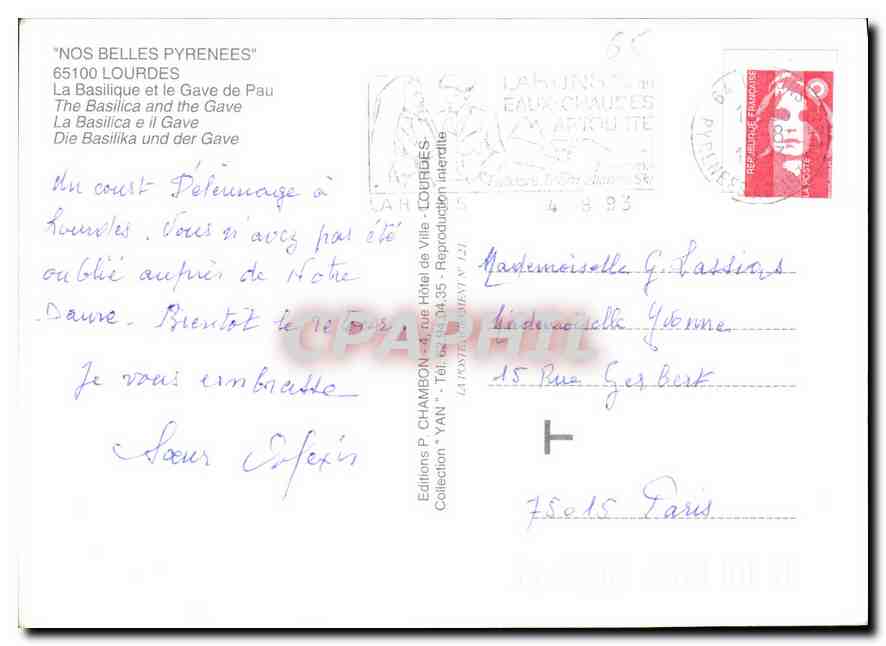 "NOS BELLES PYRENEES"
65100 LOURDES
La Basilique et le Gave de Pau
The Basilica and the Gave
La Basilica e il Gave
Die Basilika und der Gave
Un court Pélerinage à
Lourdes. Vous n'avez pas été
oublié auprès de Notre
Dame. Bientôt le retour.
Je vous embrasse
Sœur
Editions P. CHAMBON - 4, rue Hôtel de Ville - LOURDES
Collection "YAN" - Tél. 62.94.04.35 - Reproduction interdite
65
LARUNS
EAUX-CHAUDES
ARTOUSTE
LARUNS 4 8 93
PYRENEES
REPUBLIQUE FRANÇAISE
LA POSTE
Mademoiselle G. Lassigs
Mademoiselle Yvonne
15 Rue Gerbert
T
75015 Paris
CPAPHIL